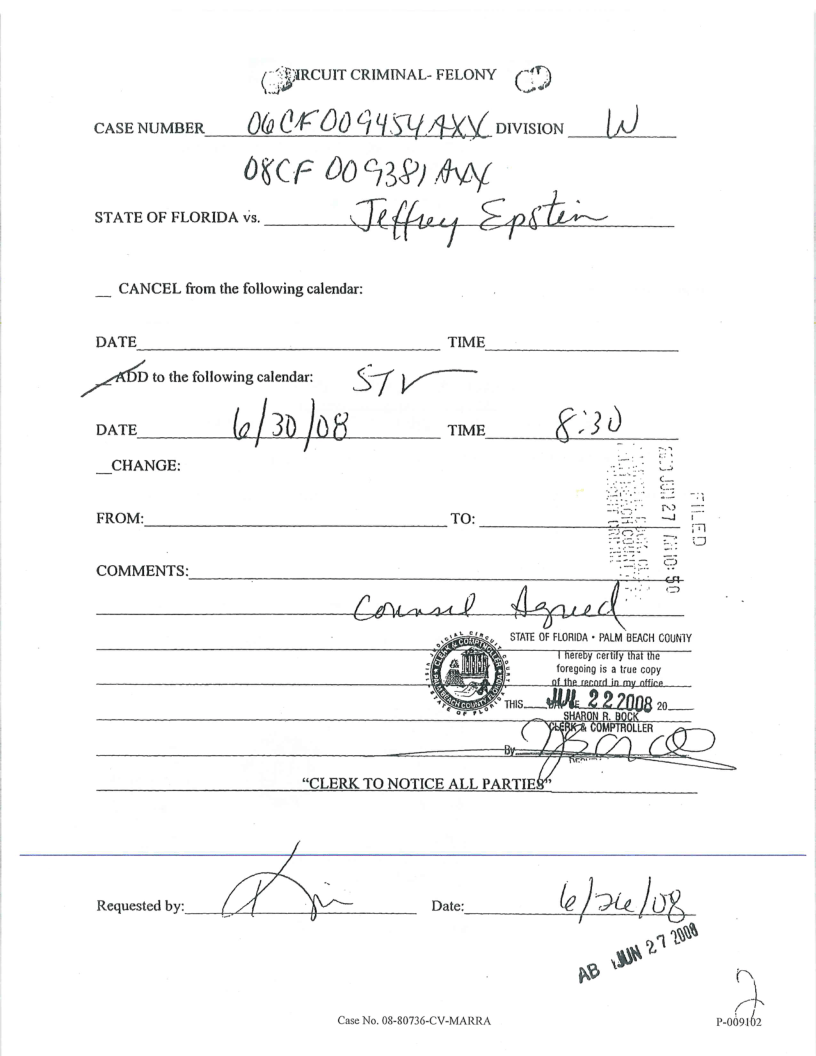 IRCUIT CRIMINAL- FELONY
CASE NUMBER 06CF009454AXX DIVISION W
08CF 009381 AXX
STATE OF FLORIDA vs. Jeffrey Epstein
__ CANCEL from the following calendar:
DATE TIME
__ADD to the following calendar:
DATE 6/30/08 TIME 8:30
__CHANGE:
FROM: TO:
FILED
JUN 27 AM 10: 50
COMMENTS:
Counsel Agreed
STATE OF FLORIDA • PALM BEACH COUNTY
I hereby certify that the
foregoing is a true copy
of the record in my office
THIS 22 2008 20
SHARON R. BOCK
CLERK & COMPTROLLER
By
"CLERK TO NOTICE ALL PARTIES"
Requested by: Date: 6/26/08
AB JUN 27 2008
2
Case No. 08-80736-CV-MARRA P-009102